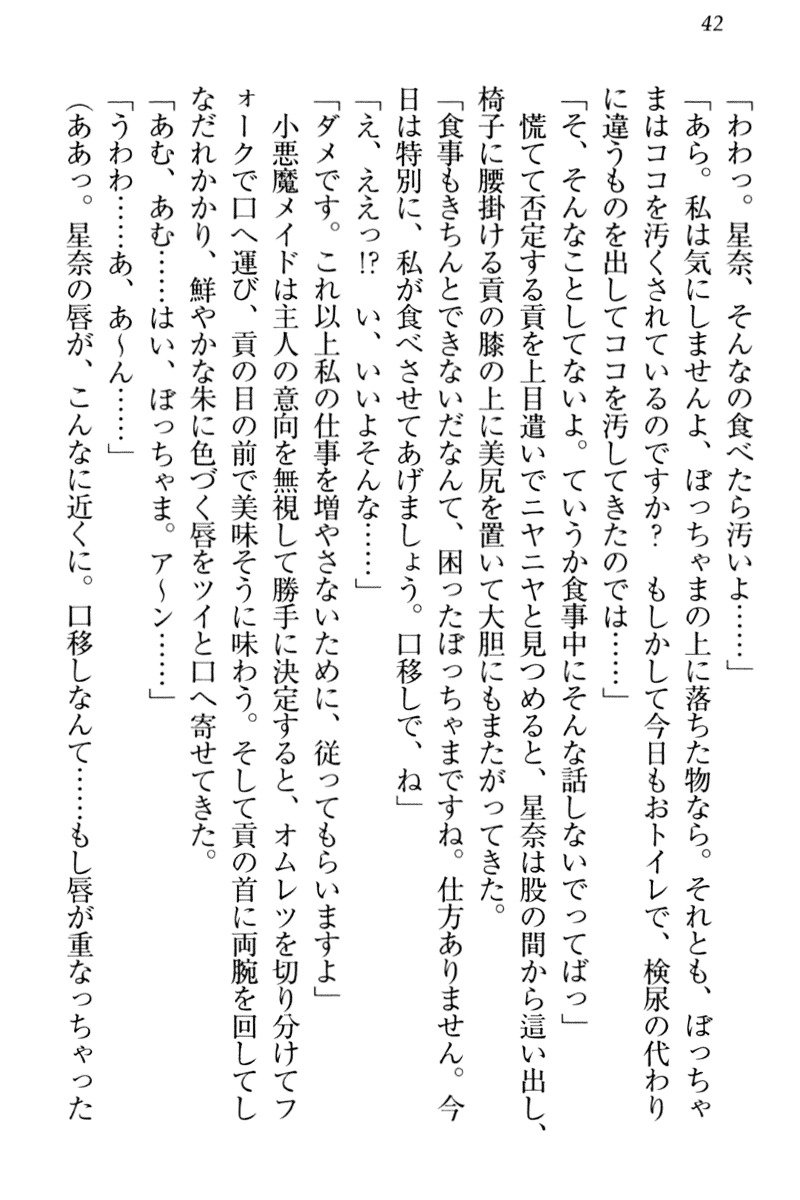 42
「わわっ。星奈、そんなの食べたら汚いよ……」
「あら。私は気にしませんよ、ぼっちゃまの上に落ちた物なら。それとも、ぼっちゃ
まはココを汚くされているのですか？　もしかして今日もおトイレで、検尿の代わり
に違うものを出してココを汚してきたのでは……」
「そ、そんなことしてないよ。ていうか食事中にそんな話しないでってばっ」
　慌てて否定する貢を上目遣いでニヤニヤと見つめると、星奈は股の間から這い出し、
椅子に腰掛ける貢の膝の上に美尻を置いて大胆にもまたがってきた。
「食事もきちんとできないだなんて、困ったぼっちゃまですね。仕方ありません。今
日は特別に、私が食べさせてあげましょう。口移しで、ね」
「え、ええっ!?　い、いいよそんな……」
「ダメです。これ以上私の仕事を増やさないために、従ってもらいますよ」
　小悪魔メイドは主人の意向を無視して勝手に決定すると、オムレツを切り分けてフ
ォークで口へ運び、貢の目の前で美味そうに味わう。そして貢の首に両腕を回してし
なだれかかり、鮮やかな朱に色づく唇をツイと口へ寄せてきた。
「あむ、あむ……はい、ぼっちゃま。ア〜ン……」
「うわわ……あ、あ〜ん……」
（ああっ。星奈の唇が、こんなに近くに。口移しなんて……もし唇が重なっちゃった